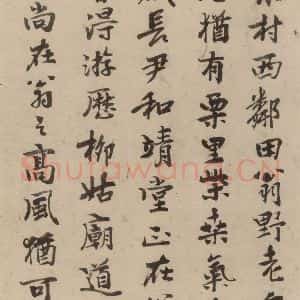 村西鄰田翁野老
猶有栗里柴桑氣
長尹和靖堂正在
得游歷柳姑廟道
尚在翁之高風猶可
Shufawang.CN